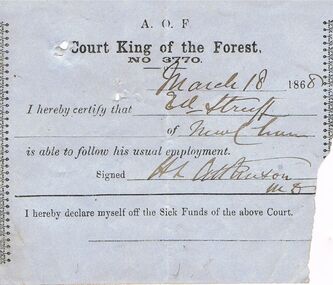 A. O. F
Court King of the Forest,
NO 3770.
March 18 1868
I hereby certify that Ed Struff
of New Chum
is able to follow his usual employment.
Signed H L Atkinson
M D
I hereby declare myself off the Sick Funds of the above Court.